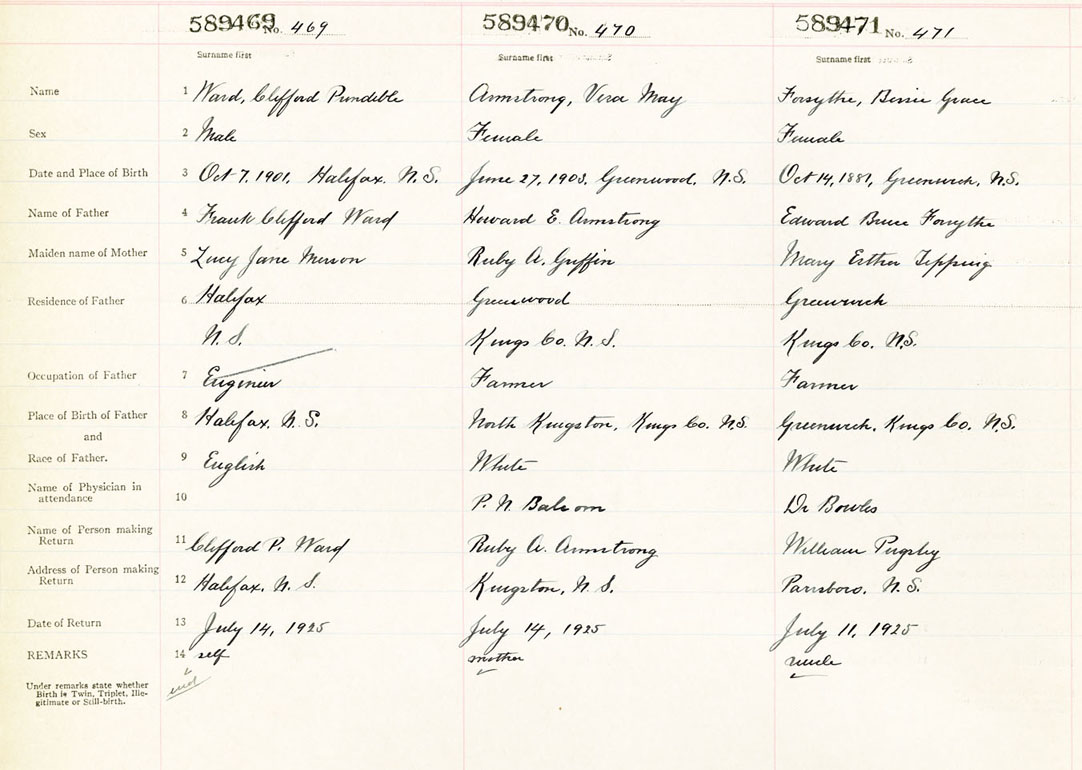 589469 No. 469 589470 No. 470 589471 No. 471
Surname first Surname first Surname first
Name 1 Ward, Clifford Armstrong, Vera May Forsythe, Bessie Grace
Sex 2 Male Female Female
Date and Place of Birth 3 Oct 7, 1901, Halifax, N.S. June 27, 1903, Greenwood, N.S. Oct 14, 1881, Greenwich, N.S.
Name of Father 4 Frank Clifford Ward Howard E. Armstrong Edward Bruce Forsythe
Maiden name of Mother 5 Lucy Jane Ruby A. Griffin Mary Esther Tepping
Residence of Father 6 Halifax Greenwood Greenwich
N.S. Kings Co. N.S. Kings Co. N.S.
Occupation of Father 7 Engineer Farmer Farmer
Place of Birth of Father 8 Halifax, N.S. North Kingston, Kings Co. N.S. Greenwich, Kings Co. N.S.
and
Race of Father. 9 English White White
Name of Physician in
attendance 10 P. N. Balcom Dr Bowles
Name of Person making
Return 11 Clifford P. Ward Ruby A. Armstrong William Pugsley
Address of Person making
Return 12 Halifax, N.S. Kingston, N.S. Parrsboro, N.S.
Date of Return 13 July 14, 1925 July 14, 1925 July 11, 1925
REMARKS 14 self mother uncle
Under remarks state whether
Birth is Twin, Triplet, Ille-
gitimate or Still-birth.